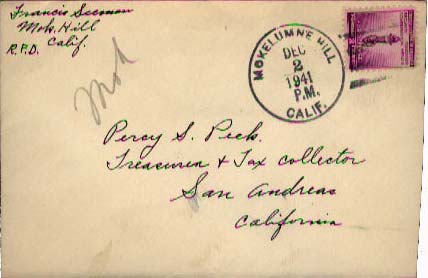 Francis Seeman
Mok. Hill
R.F.D. Calif.
Mok
MOKELUMNE HILL
DEC
2
1941
P.M.
CALIF.
Percy S. Peek.
Treasurer & Tax collector
San Andreas
California